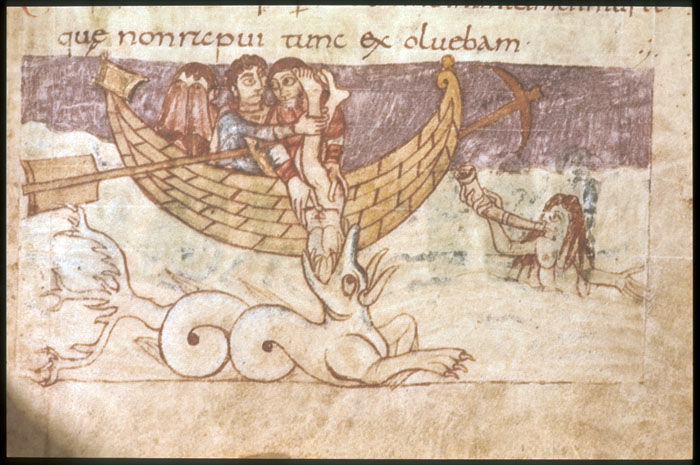 quę nonrapui tunc ex oluebam·